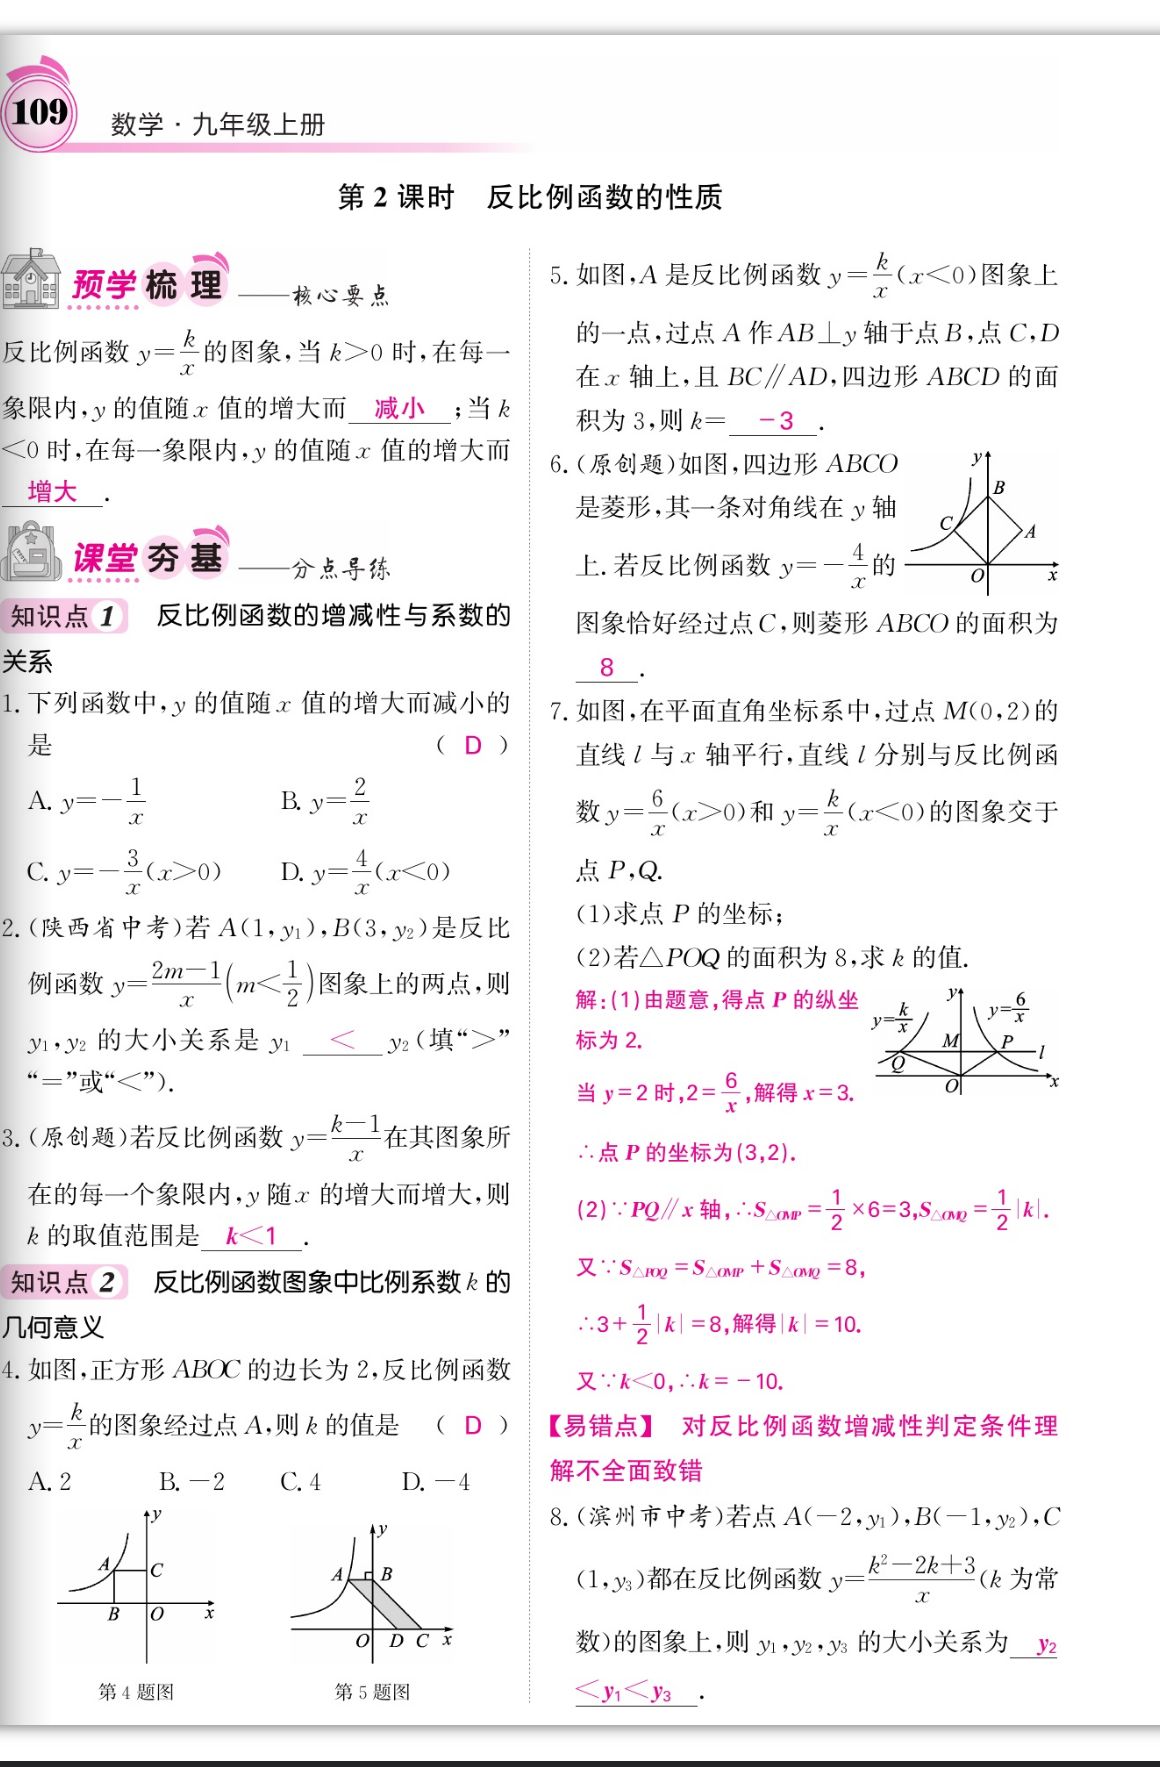 109
数学·九年级上册
第2课时 反比例函数的性质
预学梳理——核心要点
反比例函数 y=k/x的图象,当 k>0 时,在每一
象限内,y 的值随 x 值的增大而 减小 ;当 k
<0 时,在每一象限内,y 的值随 x 值的增大而
增大 .
课堂夯基——分点导练
知识点1 反比例函数的增减性与系数的
关系
1. 下列函数中,y 的值随 x 值的增大而减小的
是 ( D )
A. y=-1/x B. y=2/x
C. y=-3/x(x>0) D. y=4/x(x<0)
2. (陕西省中考)若 A(1,y₁),B(3,y₂)是反比
例函数 y=(2m-1)/x(m<1/2)图象上的两点,则
y₁,y₂ 的大小关系是 y₁ < y₂(填“>”
“=”或“<”).
3. (原创题)若反比例函数 y=(k-1)/x在其图象所
在的每一个象限内,y 随 x 的增大而增大,则
k 的取值范围是 k<1 .
知识点2 反比例函数图象中比例系数 k 的
几何意义
4. 如图,正方形 ABOC 的边长为 2,反比例函数
y=k/x的图象经过点 A,则 k 的值是 ( D )
A. 2 B. -2 C. 4 D. -4
y
A C
B O x
第 4 题图
y
A B
O D C x
第 5 题图
5. 如图,A 是反比例函数 y=k/x(x<0)图象上
的一点,过点 A 作 AB⊥y 轴于点 B,点 C,D
在 x 轴上,且 BC∥AD,四边形 ABCD 的面
积为 3,则 k= -3 .
6. (原创题)如图,四边形 ABCO
是菱形,其一条对角线在 y 轴
上. 若反比例函数 y=-4/x的
图象恰好经过点 C,则菱形 ABCO 的面积为
8 .
y
B
C A
O x
7. 如图,在平面直角坐标系中,过点 M(0,2)的
直线 l 与 x 轴平行,直线 l 分别与反比例函
数 y=6/x(x>0)和 y=k/x(x<0)的图象交于
点 P,Q.
(1)求点 P 的坐标;
(2)若△POQ 的面积为 8,求 k 的值.
解:(1)由题意,得点 P 的纵坐
标为 2.
当 y=2 时,2=6/x,解得 x=3.
∴点 P 的坐标为(3,2).
y
y=k/x y=6/x
M P l
Q
O x
(2)∵PQ∥x 轴,∴S△OMP=1/2×6=3,S△OMQ=1/2|k|.
又∵S△POQ=S△OMP+S△OMQ=8,
∴3+1/2|k|=8,解得|k|=10.
又∵k<0,∴k=-10.
【易错点】 对反比例函数增减性判定条件理
解不全面致错
8. (滨州市中考)若点 A(-2,y₁),B(-1,y₂),C
(1,y₃)都在反比例函数 y=(k²-2k+3)/x(k 为常
数)的图象上,则 y₁,y₂,y₃ 的大小关系为 y₂
<y₁<y₃ .